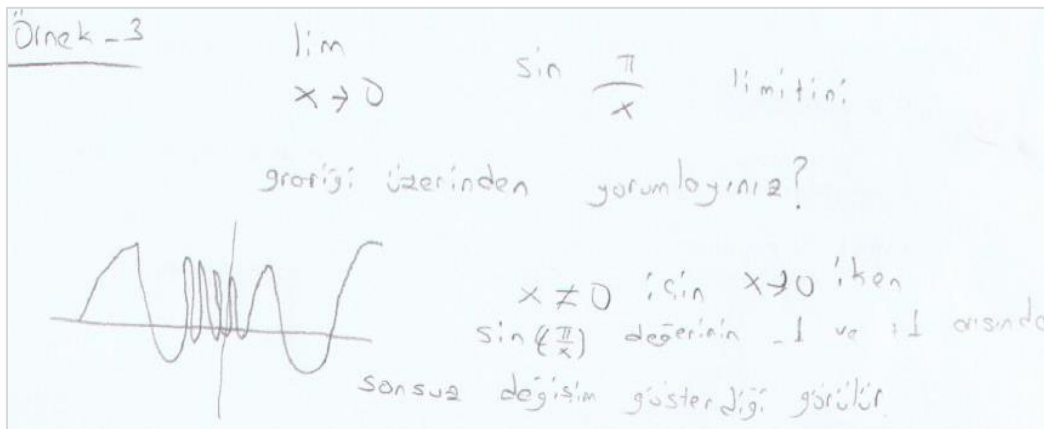 Örnek-3
lim x→0 sin π/x limitini
grafiği üzerinden yorumlayınız?
x≠0 için x→0 iken
sin(π/x) değerinin -1 ve +1 arasında
sonsuz değişim gösterdiği görülür.